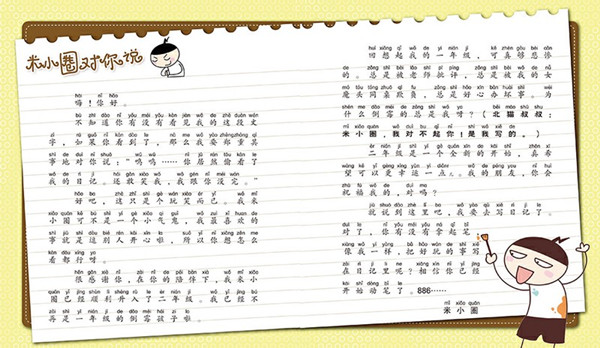 米小圈对你说
嗨！你好。
不知道你有没有看见我的这段文
字，如果你看到了，那么我要郑重其
事地对你说："呜呜……你居然偷看了
我的日记。还敢笑我，我跟你没完。"
好吧，这只是个玩笑而已。我米
小圈可不是一个小气鬼，我最喜欢的
事就是逗别人开心啦，所以你想怎么
看都行呀。
很感谢你，在你的陪伴下，我米小
圈已经顺利升入了二年级。我已经不
再是一年级的倒霉孩子啦。
回想起我的一年级，可真够悲惨
的。总是被老师批评，总是被我的女
魔头同桌欺负，总是好心办坏事。为
什么倒霉的总是我呀？（北猫叔叔：
米小圈，我对不起你！是我写的。）
二年级是一个全新的开始，真希
望可以更幸运一点儿。我的朋友，你会
祝福我的，对吗？
就说到这里吧，我要去写日记了。
对了，你有没有拿起笔，
像我一样，把好玩的事写
在日记里呢？相信你已经
开始动笔了。886……
米小圈